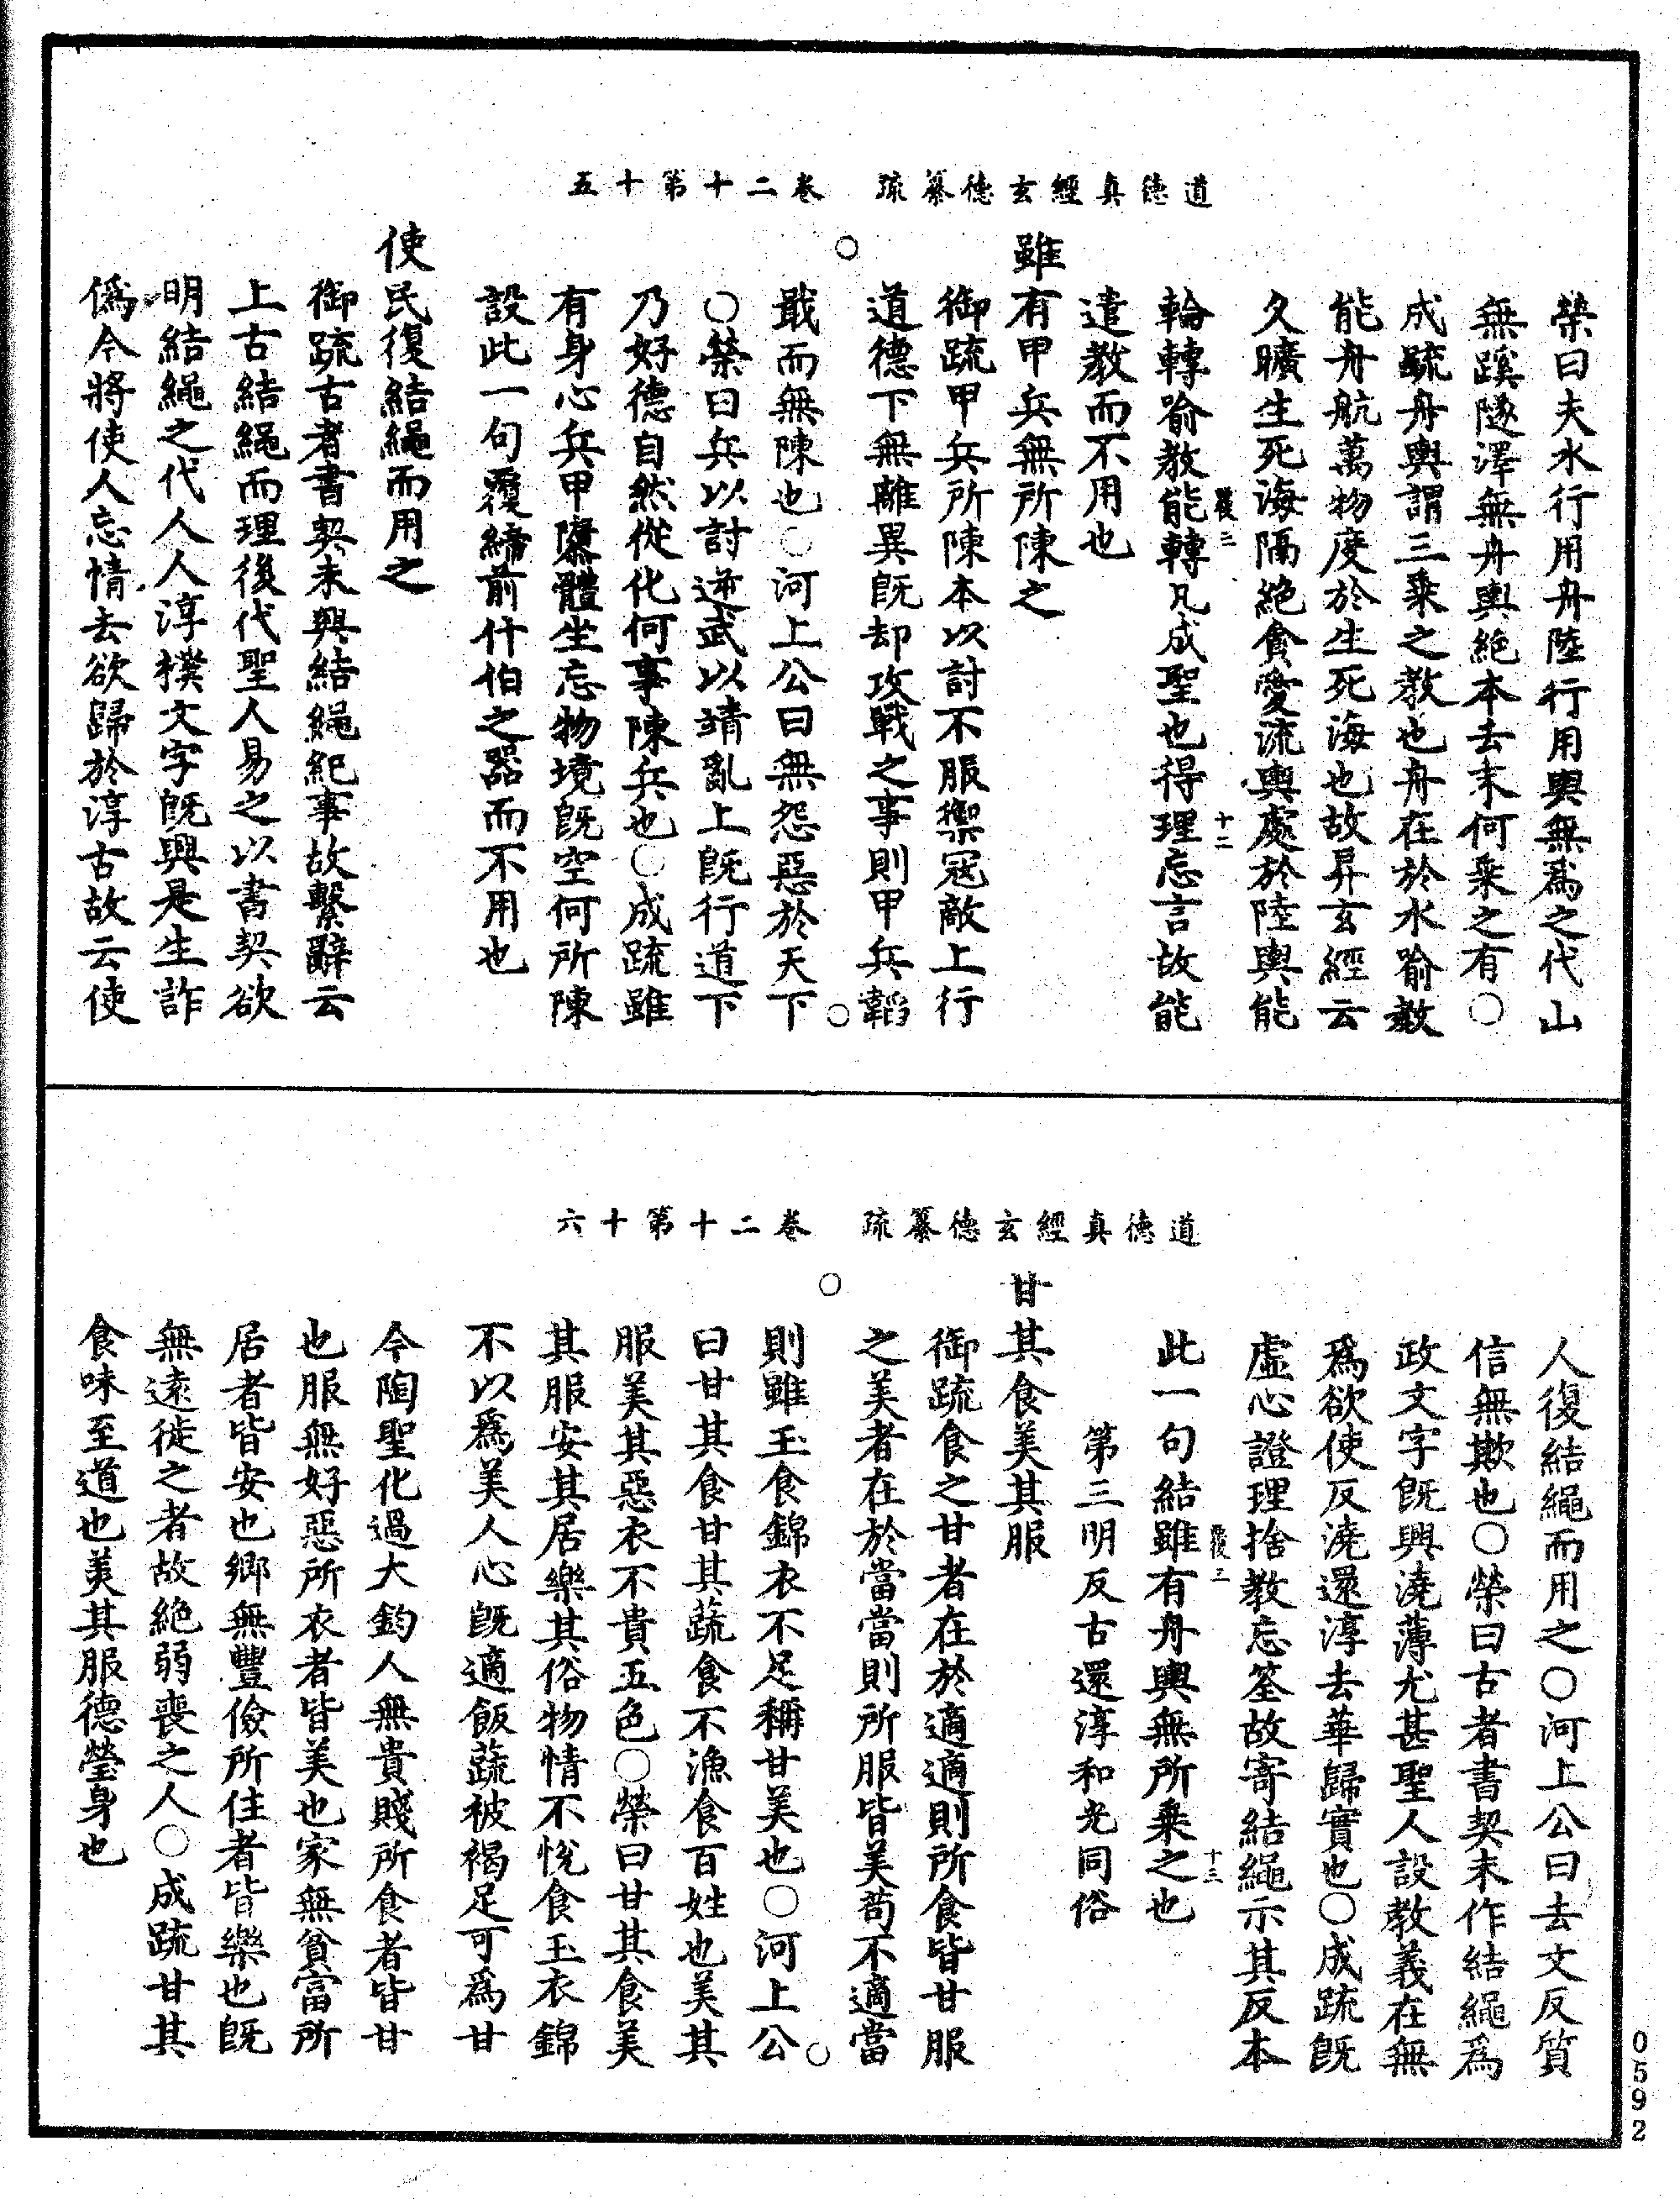 道德真經玄德纂疏　卷二十第十五
榮曰夫水行用舟陸行用輿無爲之代山
無蹊隧澤無舟輿絶本去末何乘之有○
成疏舟輿謂三乘之教也舟在於水喻教
能舟航萬物度於生死海也故昇玄經云
久曠生死海隔絶貪愛流輿處於陸輿能
十二
輪轉喻教能轉凡成聖也得理忘言故能
遣教而不用也
雖有甲兵無所陳之
御疏甲兵所陳本以討不服禦寇敵上行
道德下無離異旣却攻戰之事則甲兵韜
戢而無陳也○河上公曰無怨惡於天下
○榮曰兵以討逆武以靖亂上旣行道下
乃好德自然從化何事陳兵也○成疏雖
有身心兵甲隳體坐忘物境旣空何所陳
設此一句覆締前什伯之器而不用也
使民復結繩而用之
御疏古者書契未興結繩紀事故繫辭云
上古結繩而理後代聖人易之以書契欲
明結繩之代人人淳樸文字旣興是生詐
僞今將使人忘情去欲歸於淳古故云使
道德真經玄德纂疏　卷二十第十六
人復結繩而用之○河上公曰去文反質
信無欺也○榮曰古者書契未作結繩爲
政文字旣興澆薄尤甚聖人設教義在無
爲欲使反澆還淳去華歸實也○成疏旣
虛心證理捨教忘筌故寄結繩示其反本
十三
此一句結雖有舟輿無所乘之也
第三明反古還淳和光同俗
甘其食美其服
御疏食之甘者在於適適則所食皆甘服
之美者在於當當則所服皆美苟不適當
則雖玉食錦衣不足稱甘美也○河上公
曰甘其食甘其蔬食不漁食百姓也美其
服美其惡衣不貴五色○榮曰甘其食美
其服安其居樂其俗物情不悅食玉衣錦
不以爲美人心旣適飯蔬被褐足可爲甘
今陶聖化過大鈞人無貴賤所食者皆甘
也服無好惡所衣者皆美也家無貧富所
居者皆安也鄉無豐儉所住者皆樂也旣
無遠徙之者故絶弱喪之人○成疏甘其
食味至道也美其服德瑩身也
0592